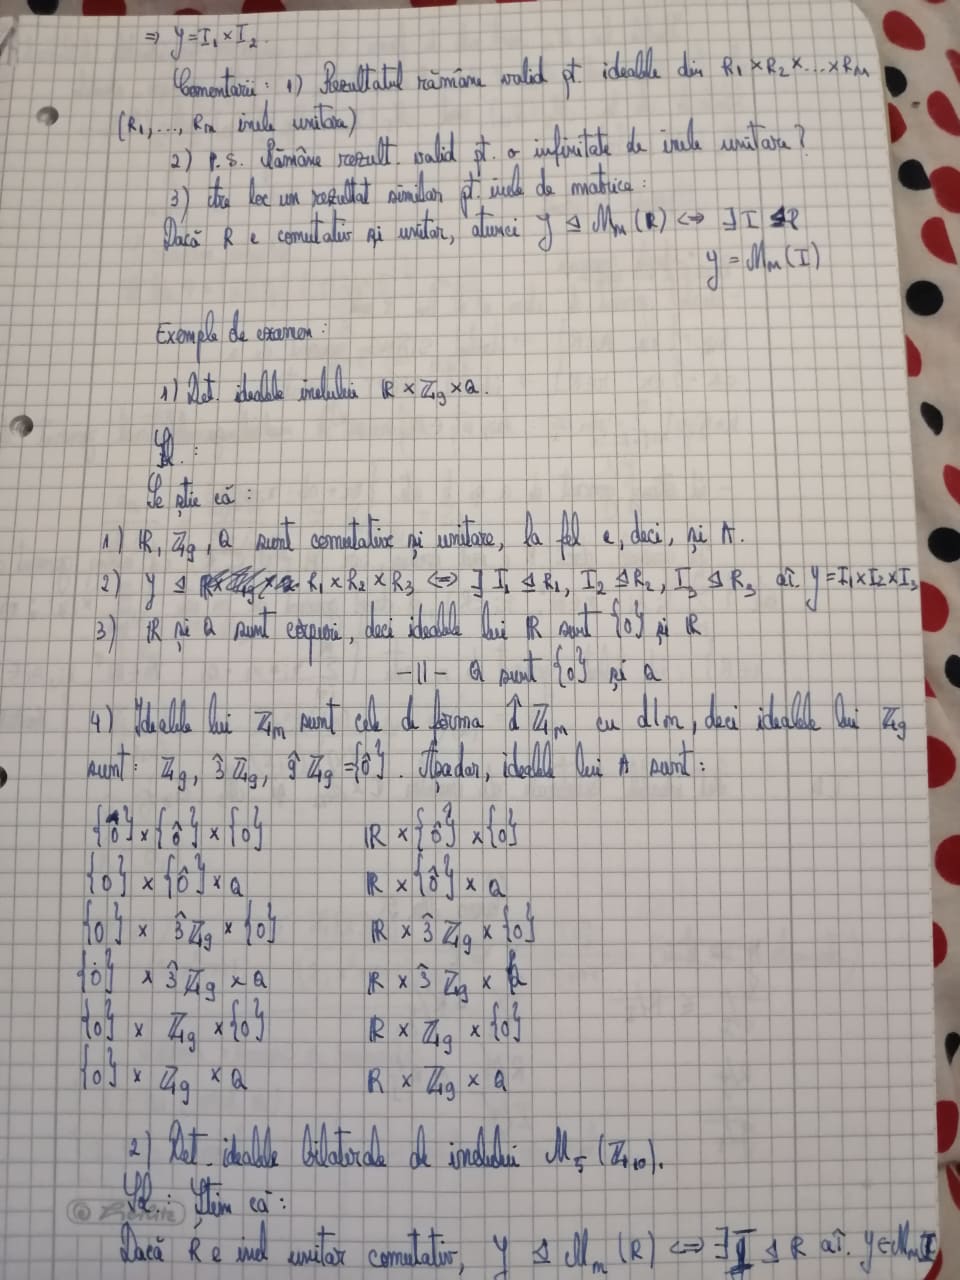 ⇒ Y = I₁ × I₂.
Comentarii: 1) Rezultatul rămâne valid pt. idealele din R₁ × R₂ × ... × Rₘ
(R₁, ..., Rₘ inele unitare)
2) P.S. Rămâne rezult. valid pt. o infinitate de inele unitare?
3) Are loc un rezultat similar pt. inele de matrice:
Dacă R e comutativ și unitar, atunci Y ⊴ Mₘ(R) ⇔ ∃ I ⊴ R
Y = Mₘ(I)
Exemple de examen:
1) Det. idealele inelului ℝ × ℤ₉ × ℚ.
Se știe că:
1) ℝ, ℤ₉, ℚ sunt comutative și unitare, la fel e, deci, și A.
2) Y ⊴ R₁ × R₂ × R₃ ⇔ ∃ I₁ ⊴ R₁, I₂ ⊴ R₂, I₃ ⊴ R₃ aî. Y = I₁ × I₂ × I₃
3) ℝ și ℚ sunt corpuri, deci idealele lui ℝ sunt {0} și ℝ
-||- ℚ sunt {0} și ℚ
4) Idealele lui ℤₘ sunt cele de forma d̂ ℤₘ cu d|m, deci idealele lui ℤ₉
sunt: ℤ₉, 3̂ ℤ₉, 9̂ ℤ₉ = {0̂}. Așadar, idealele lui A sunt:
{0} × {0̂} × {0} ℝ × {0̂} × {0}
{0} × {0̂} × ℚ ℝ × {0̂} × ℚ
{0} × 3̂ ℤ₉ × {0} ℝ × 3̂ ℤ₉ × {0}
{0} × 3̂ ℤ₉ × ℚ ℝ × 3̂ ℤ₉ × ℚ
{0} × ℤ₉ × {0} ℝ × ℤ₉ × {0}
{0} × ℤ₉ × ℚ ℝ × ℤ₉ × ℚ
2) Det. idealele bilaterale de inelului M₅(ℤ₁₀).
Știm că:
Dacă R e inel unitar comutativ, Y ⊴ Mₘ(R) ⇔ ∃ I ⊴ R aî. Y ∈ Mₘ